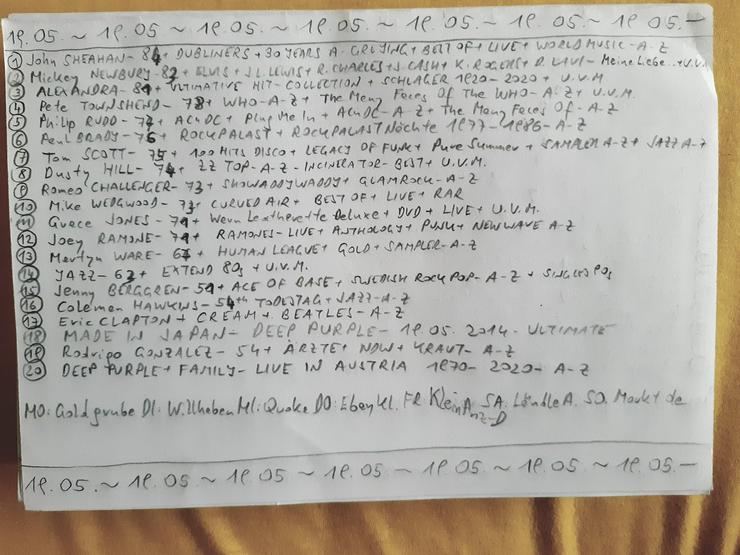 19.05. ~ 19.05. ~ 19.05 ~ 19.05 ~ 19.05. ~ 19.05. ~ 19.05. -
1 John SHEAHAN - 84 + DUBLINERS + 30 YEARS A-GREYING + BEST OF + LIVE + WORLD MUSIC - A-Z
2 Mickey NEWBURY - 82 + ELVIS + J.L. LEWIS + R. CHARLES + J. CASH + K. ROGERS + D. LAVI - Meine Liebe..+ U.V.M.
3 ALEXANDRA - 81 + ULTIMATIVE HIT-COLLECTION + SCHLAGER 1920-2020 + U.V.M
4 Pete TOWNSHEND - 78 + WHO - A-Z + The Many Faces Of The WHO - A-Z + U.V.M.
5 Philip RUDD - 77 + ACDC + Plug Me In + ACDC - A-Z + The Many Faces Of - A-Z
6 Paul BRADY - 76 + ROCKPALAST + ROCKPALAST Nächte 1977-1986 - A-Z
7 Tom SCOTT - 75 + 100 HITS DISCO + LEGACY OF FUNK + Pure Summer + SAMPLER A-Z + JAZZ A-Z
8 Dusty HILL - 74 + ZZ TOP - A-Z - INCINERATOR - BEST + U.V.M.
9 Romeo CHALLENGER - 73 + SHOWADDYWADDY + GLAMROCK - A-Z
10 Mike WEDGWOOD - 73 + CURVED AIR + BEST OF + LIVE + RAR
11 Grace JONES - 71 + Warm Leatherette Deluxe + DVD + LIVE + U.V.M.
12 Joey RAMONE - 71 + RAMONES - LIVE + ANTHOLOGY + PUNK + NEW WAVE A-Z
13 Martyn WARE - 67 + HUMAN LEAGUE + GOLD + SAMPLER - A-Z
14 YAZZ - 63 + EXTEND 80s + U.V.M.
15 Jenny BERGGREN - 51 + ACE OF BASE + SWEDISH ROCK POP - A-Z + SINGLES 90s
16 Coleman HAWKINS - 54th TODESTAG + JAZZ - A-Z
17 Eric CLAPTON + CREAM + BEATLES - A-Z
18 MADE IN JAPAN - DEEP PURPLE - 19.05. 2014 - ULTIMATE
19 Rodrigo GONZALEZ - 54 + ÄRZTE + NDW + KRAUT - A-Z
20 DEEP PURPLE + FAMILY - LIVE IN AUSTRIA 1970-2020 - A-Z
MO: Goldgrube DI: Willhaben MI: Quoka DO: Ebay Kl. FR: Klein Anz-D SA: Ländle A. SO. Markt de
19.05. ~ 19.05. ~ 19.05 ~ 19.05 ~ 19.05. ~ 19.05 ~ 19.05. -